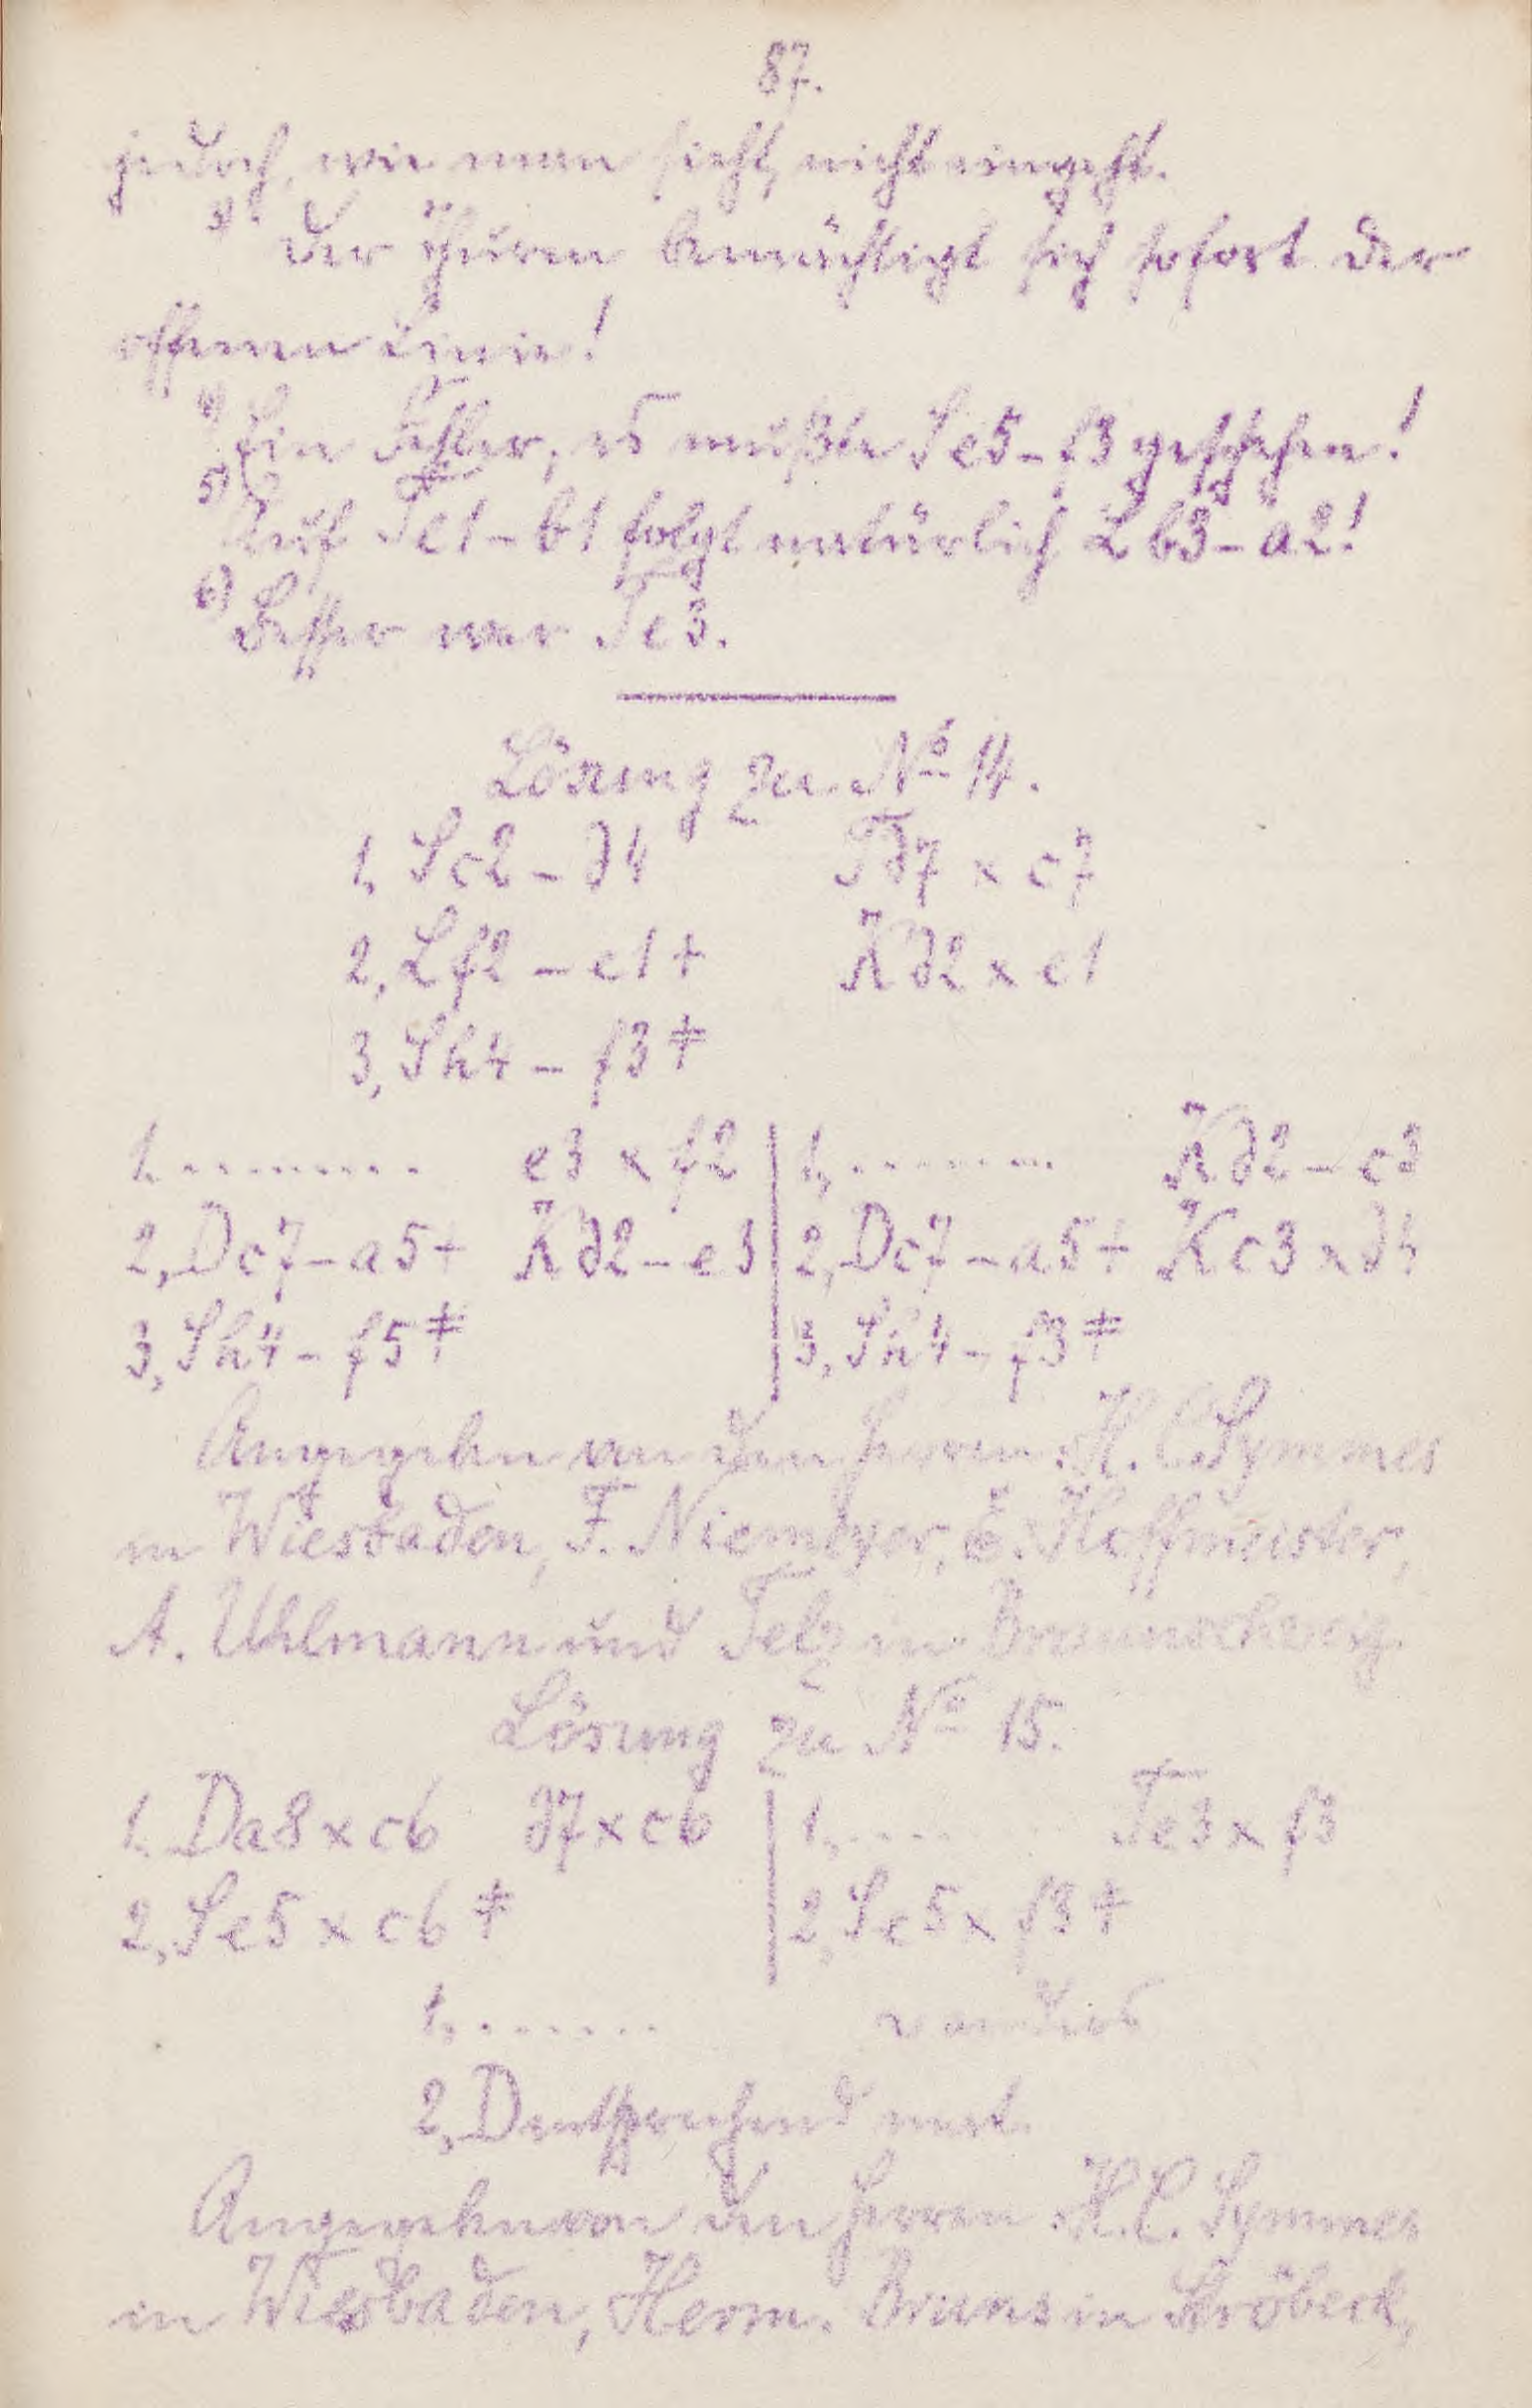 87.
jedoch, wie man sieht, nicht eingeht.
3) Der Thurm bemächtigt sich sofort der
offenen Linie!
4) Ein Fehler, es mußte Se5-f3 geschehen!
5) Auf Te1-b1 folgt natürlich Lb3-a2!
6) Besser war Te3.
Lösung zu No 14.
1, Sc2-d4 Td7 x c7
2, Lf2-e1+ Kd2 x e1
3, Sh4-f3‡
1, ......... e3 x f2 | 1, ......... Kd2-c3
2, Dc7-a5+ Kd2-e3 | 2, Dc7-a5+ Kc3 x d4
3, Sh4-f5‡ | 3, Sh4-f3‡
Angegeben von den Herren H. C. Symmes
in Wiesbaden, F. Niemeyer, E. Hoffmeister,
A. Uhlmann und Telz in Braunschweig.
Lösung zu No 15.
1. Da8 x c6 d7 x c6 | 1, ..... Te3 x f3
2, Se5 x c6‡ | 2, Se5 x f3‡
1, ....... anders
2, D entsprechend mat.
Angegeben von den Herren H. C. Symmes
in Wiesbaden, Herm. Bruns in Ströbeck,